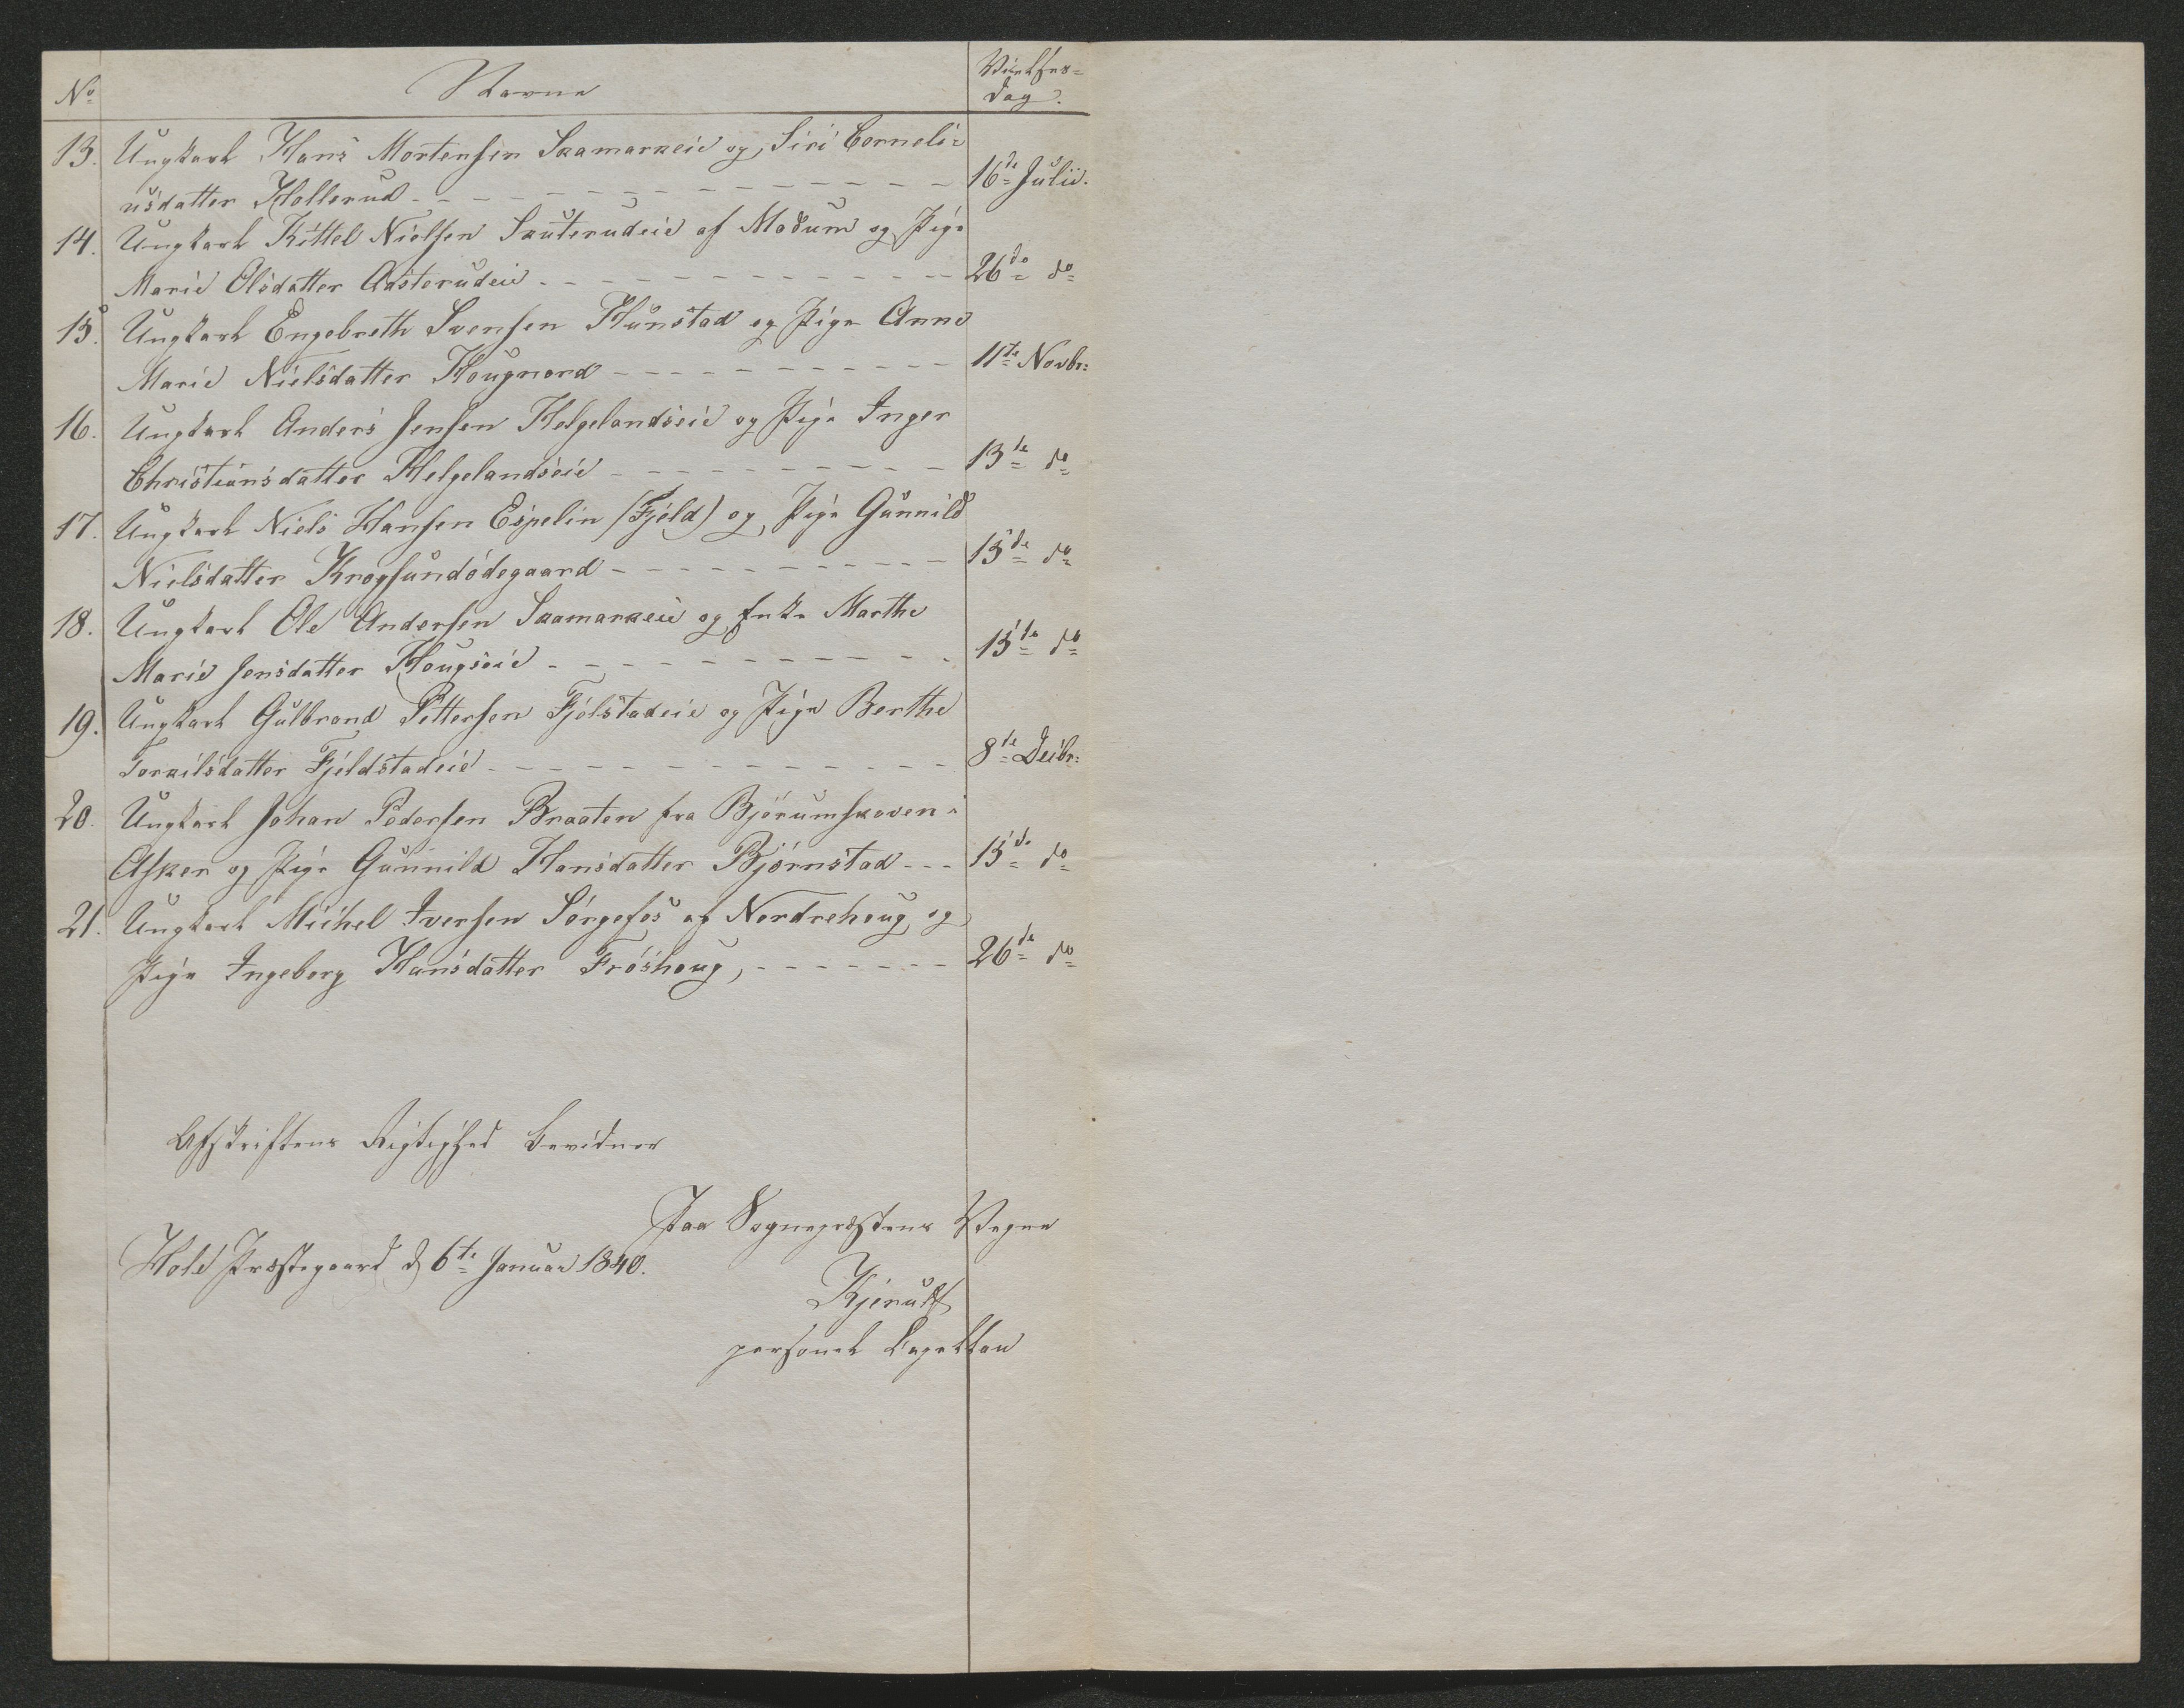 No Navne Vielses=
dag.
13. Ungkarl Hans Mortensen Skamarkeie og Siri Corneli=
usdatter Hollerud - - - 16de Julii.
14. Ungkarl Kittel Nielsen Skuterudeie af Modum og Pige
Marie Olsdatter Aasterudeie - - - 26de do
15. Ungkarl Engebreth Svensen Hunstad og Pige Anne
Marie Nielsdatter Hougnord - - - 11te Novbr:
16. Ungkarl Anders Jensen Helgelandseie og Pige Inger
Christiansdatter Helgelandseie - - - 13de do
17. Ungkarl Niels Hansen Espelin (Fjeld) og Pige Gunnild
Nielsdatter Krogsundødegaard - - - 15de do
18. Ungkarl Ole Andersen Skamarkeie og Enke Marthe
Marie Jensdatter Hougseie - - - 15de do
19. Ungkarl Gulbrand Pettersen Fjelstadeie og Pige Berthe
Torkilsdatter Fjeldstadeie - - - 8de Decbr:
20. Ungkarl Johan Pedersen Braaten fra Bjørumskoven i
Asker og Pige Gunnild Hansdatter Bjørnstad - - - 15de do
21. Ungkarl Michel Iversen Sørgefos af Nordrehoug og
Pige Ingeborg Hansdatter Frøshoug, - - - 26de do
Afskriftens Rigtighed bevidner
Paa Sognepræstens Vegne
Hole Præstegaard d 6te Januar 1840.
Kjerulf
personel Capellan